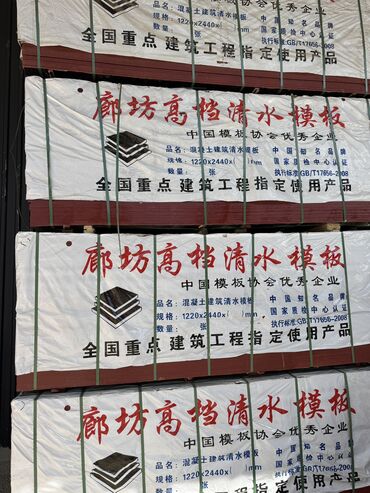 品名：混凝土建筑清水模板 中国知名品牌
规格：1220x2440x( )mm 国家质检中心认证
数量： 张 执行标准:GB/T17656-2008
全国重点 建筑工程指定使用产品
廊坊高档清水模板
中国模板协会优秀企业
品名：混凝土建筑清水模板 中国知名品牌
规格：1220x2440x( )mm 国家质检中心认证
数量： 张 执行标准:GB/T17656-2008
全国重点 建筑工程指定使用产品
廊坊高档清水模板
中国模板协会优秀企业
品名：混凝土建筑清水模板 中国知名品牌
规格：1220x2440x( )mm 国家质检中心认证
数量： 张 执行标准:GB/T17656-2008
全国重点 建筑工程指定使用产品
廊坊高档清水模板
中国模板协会优秀企业
品名：混凝土建筑清水模板 中国知名品牌
规格：1220x2440x( )mm 国家质检中心认证
数量： 张 执行标准:GB/T17656-2008